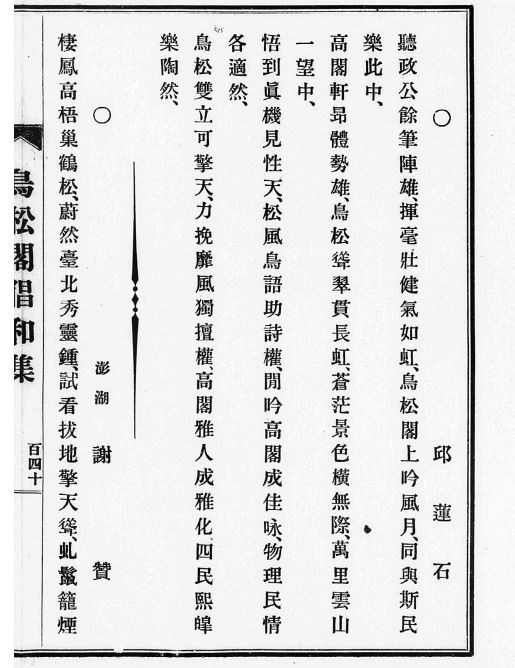 ○　邱蓮石
聽政公餘筆陣雄、揮毫壯健氣如虹、鳥松閣上吟風月、同與斯民
樂此中、
高閣軒昂體勢雄、鳥松聳翠貫長虹、蒼茫景色橫無際、萬里雲山
一望中、
悟到眞機見性天、松風鳥語助詩權、閒吟高閣成佳咏、物理民情
各適然、
鳥松雙立可擎天、力挽靡風獨擅權、高閣雅人成雅化、四民熙皡
樂陶然、
○　澎湖　謝贊
棲鳳高梧巢鶴松、蔚然臺北秀靈鍾、試看拔地擎天聳、虬鬣籠煙
鳥松閣唱和集
百四十